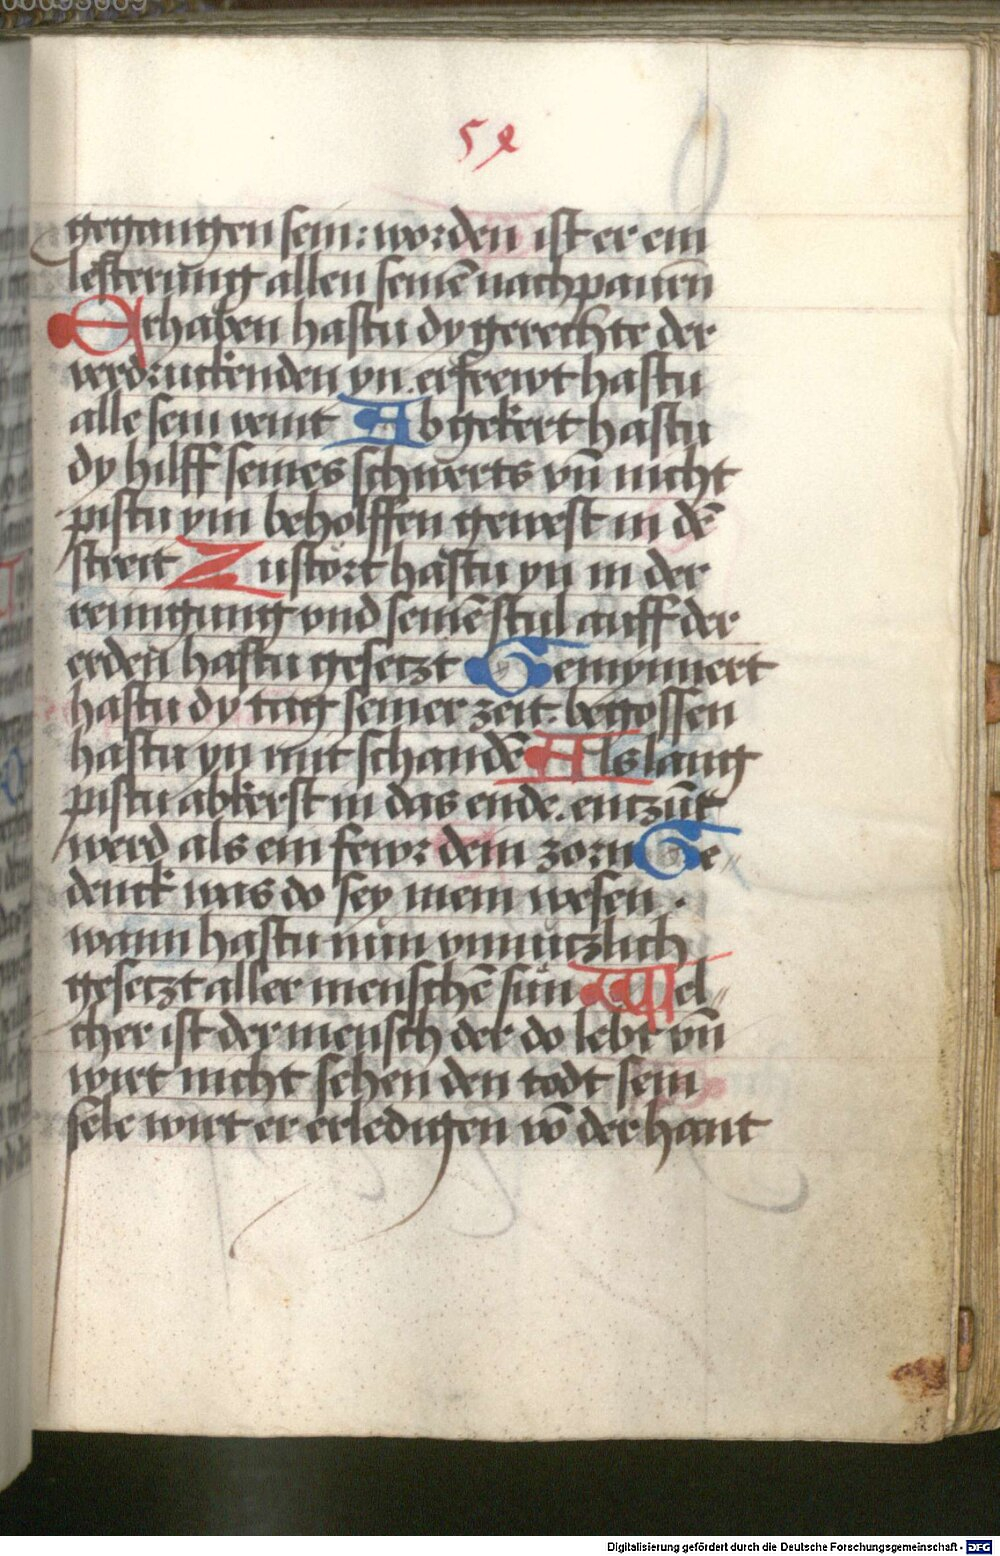 54
gegangen sein: worden ist er ein
lesterung allen seinē nachpauren
Erhaben hastu dy gerechte der
verdruckenden yn. erfrewt hastu
alle sein veint Abgekert hastu
dy hilff seines schwerts vn̄ nicht
pistu ym beholffen gewest in dē
streit Zustört hastu yn in der
reinigung vnd seinē stul auff der
erden hastu gesetzt Gemynnert
hastu dy tag seiner zeit: begossen
hastu yn mit schandē Als lang
pistu abkerst in das ende. entzūt
werd als ein fewr dein zorn Ge„
denck was do sey mein wesen.
wann hastu nün vnnützlich
gesetzt aller menschē sün Wel„
cher ist der mensch der do lebt vn̄
wirt nicht sehen den todt sein
sele wirt er erledigen vō der hant
Digitalisierung gefördert durch die Deutsche Forschungsgemeinschaft - DFG